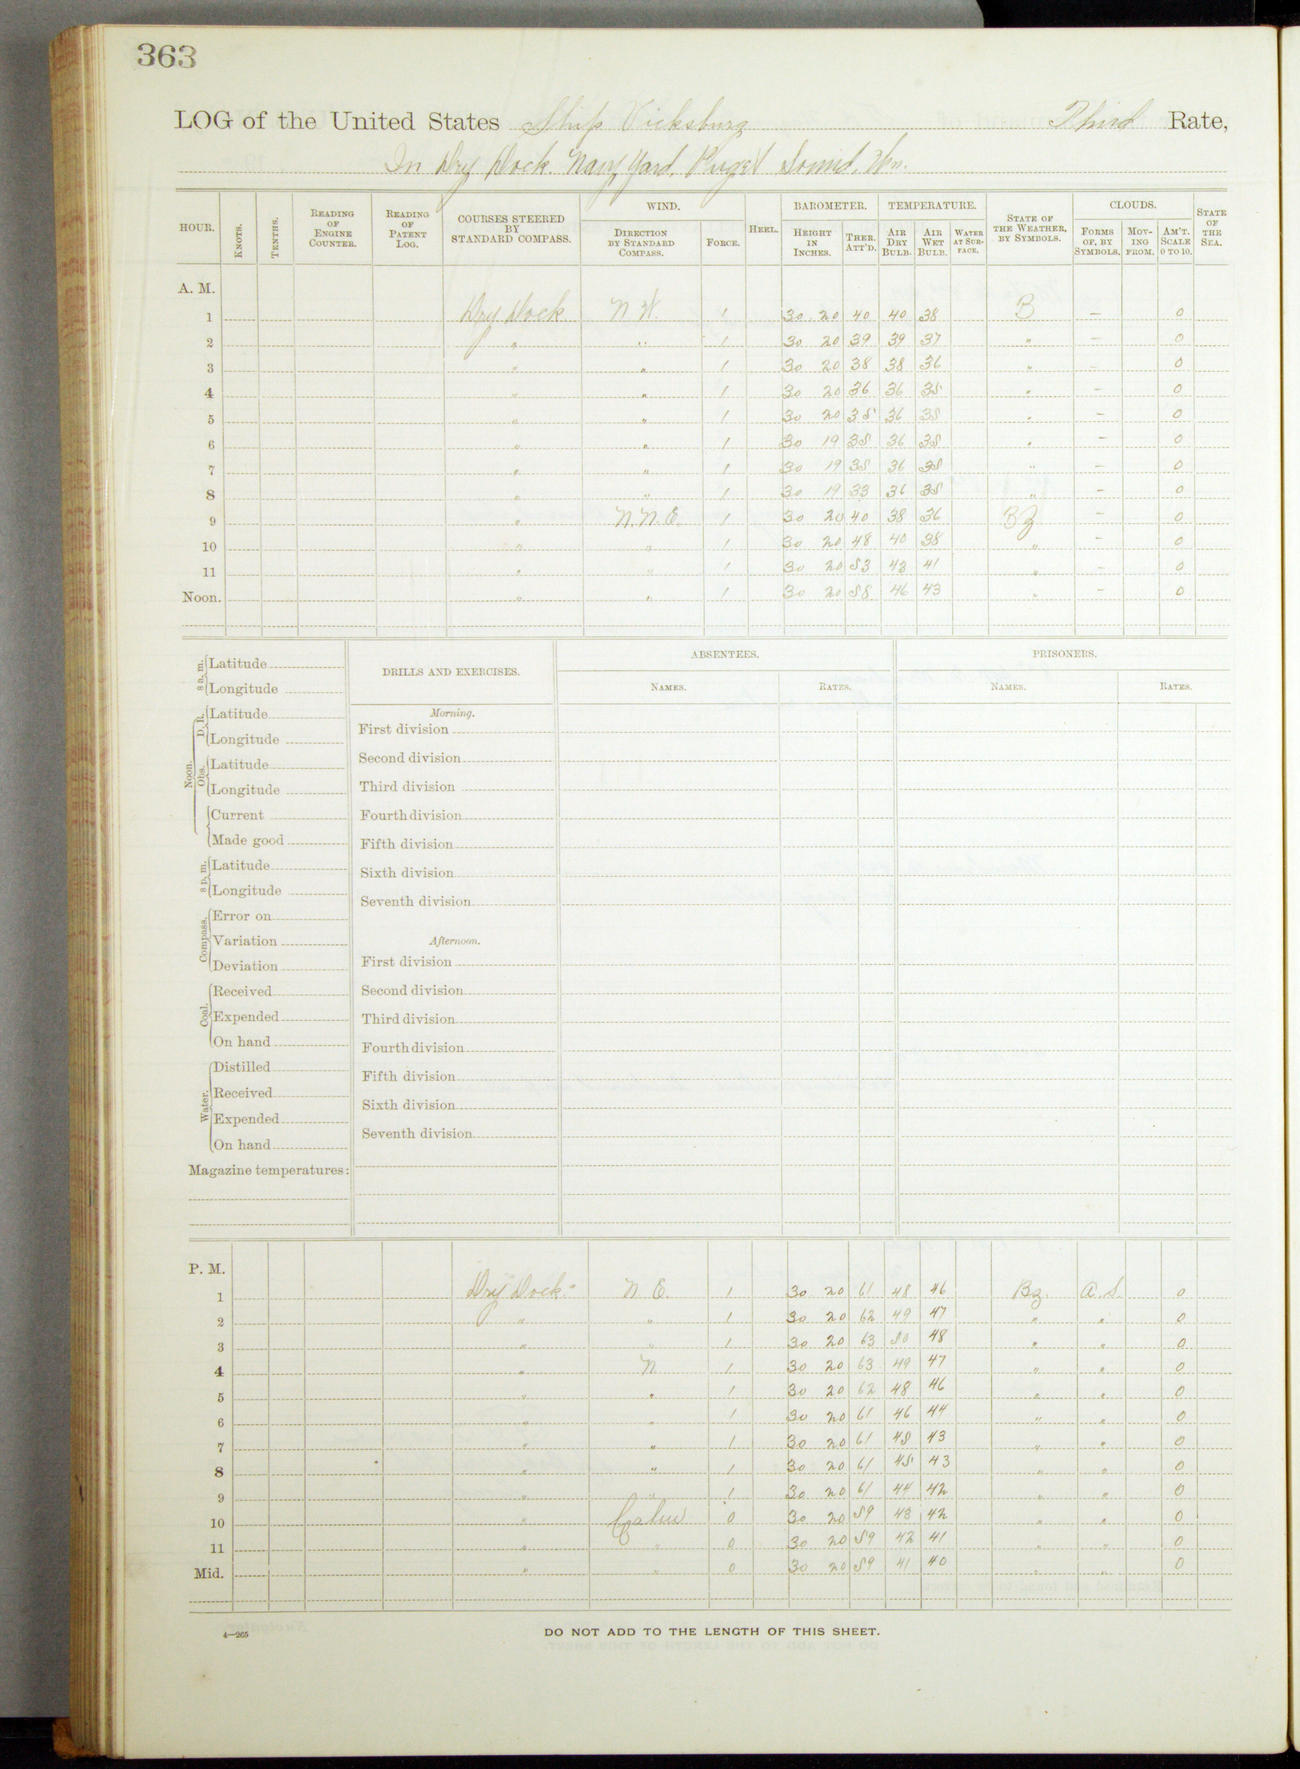 363
LOG of the United States Ship Vicksburg Third Rate,
In Dry Dock. Navy Yard, Puget Sound, Wn.
HOUR. KNOTS. TENTHS. READING OF ENGINE COUNTER. READING OF PATENT LOG. COURSES STEERED BY STANDARD COMPASS. WIND. DIRECTION BY STANDARD COMPASS. FORCE. HEEL. BAROMETER. HEIGHT IN INCHES. THER. ATT'D. TEMPERATURE. AIR DRY BULB. AIR WET BULB. WATER AT SURFACE. STATE OF THE WEATHER, BY SYMBOLS. CLOUDS. FORMS OF, BY SYMBOLS. MOVING FROM. AM'T. SCALE 0 TO 10. STATE OF THE SEA.
A. M.
1 Dry Dock N W. 1 30 20 40 40 38 B — 0
2 " " 1 30 20 39 39 37 " — 0
3 " " 1 30 20 38 38 36 " — 0
4 " " 1 30 20 36 36 35 " — 0
5 " " 1 30 20 35 36 35 " — 0
6 " " 1 30 19 35 36 35 " — 0
7 " " 1 30 19 35 36 35 " — 0
8 " " 1 30 19 33 36 35 " — 0
9 " N.N.E. 1 30 20 40 38 36 BZ — 0
10 " " 1 30 20 48 40 38 " — 0
11 " " 1 30 20 53 43 41 " — 0
Noon. " " 1 30 20 58 46 43 " — 0
8 a. m. Latitude
Longitude
Noon. D. R. Latitude
Longitude
Obs. Latitude
Longitude
Current
Made good
8 p. m. Latitude
Longitude
Compass. Error on
Variation
Deviation
Coal. Received
Expended
On hand
Water. Distilled
Received
Expended
On hand
Magazine temperatures:
DRILLS AND EXERCISES.
Morning.
First division
Second division
Third division
Fourth division
Fifth division
Sixth division
Seventh division
Afternoon.
First division
Second division
Third division
Fourth division
Fifth division
Sixth division
Seventh division
ABSENTEES.
NAMES. RATES.
PRISONERS.
NAMES. RATES.
P. M.
1 Dry Dock. N E. 1 30 20 61 48 46 Bz. A. S. 0
2 " " 1 30 20 62 49 47 " " 0
3 " " 1 30 20 63 50 48 " " 0
4 " N 1 30 20 63 49 47 " " 0
5 " " 1 30 20 62 48 46 " " 0
6 " " 1 30 20 61 46 44 " " 0
7 " " 1 30 20 61 45 43 " " 0
8 " " 1 30 20 61 45 43 " " 0
9 " " 1 30 20 61 44 42 " " 0
10 " Calm 0 30 20 59 43 42 " " 0
11 " " 0 30 20 59 42 41 " " 0
Mid. " " 0 30 20 59 41 40 " " 0
4—265
DO NOT ADD TO THE LENGTH OF THIS SHEET.